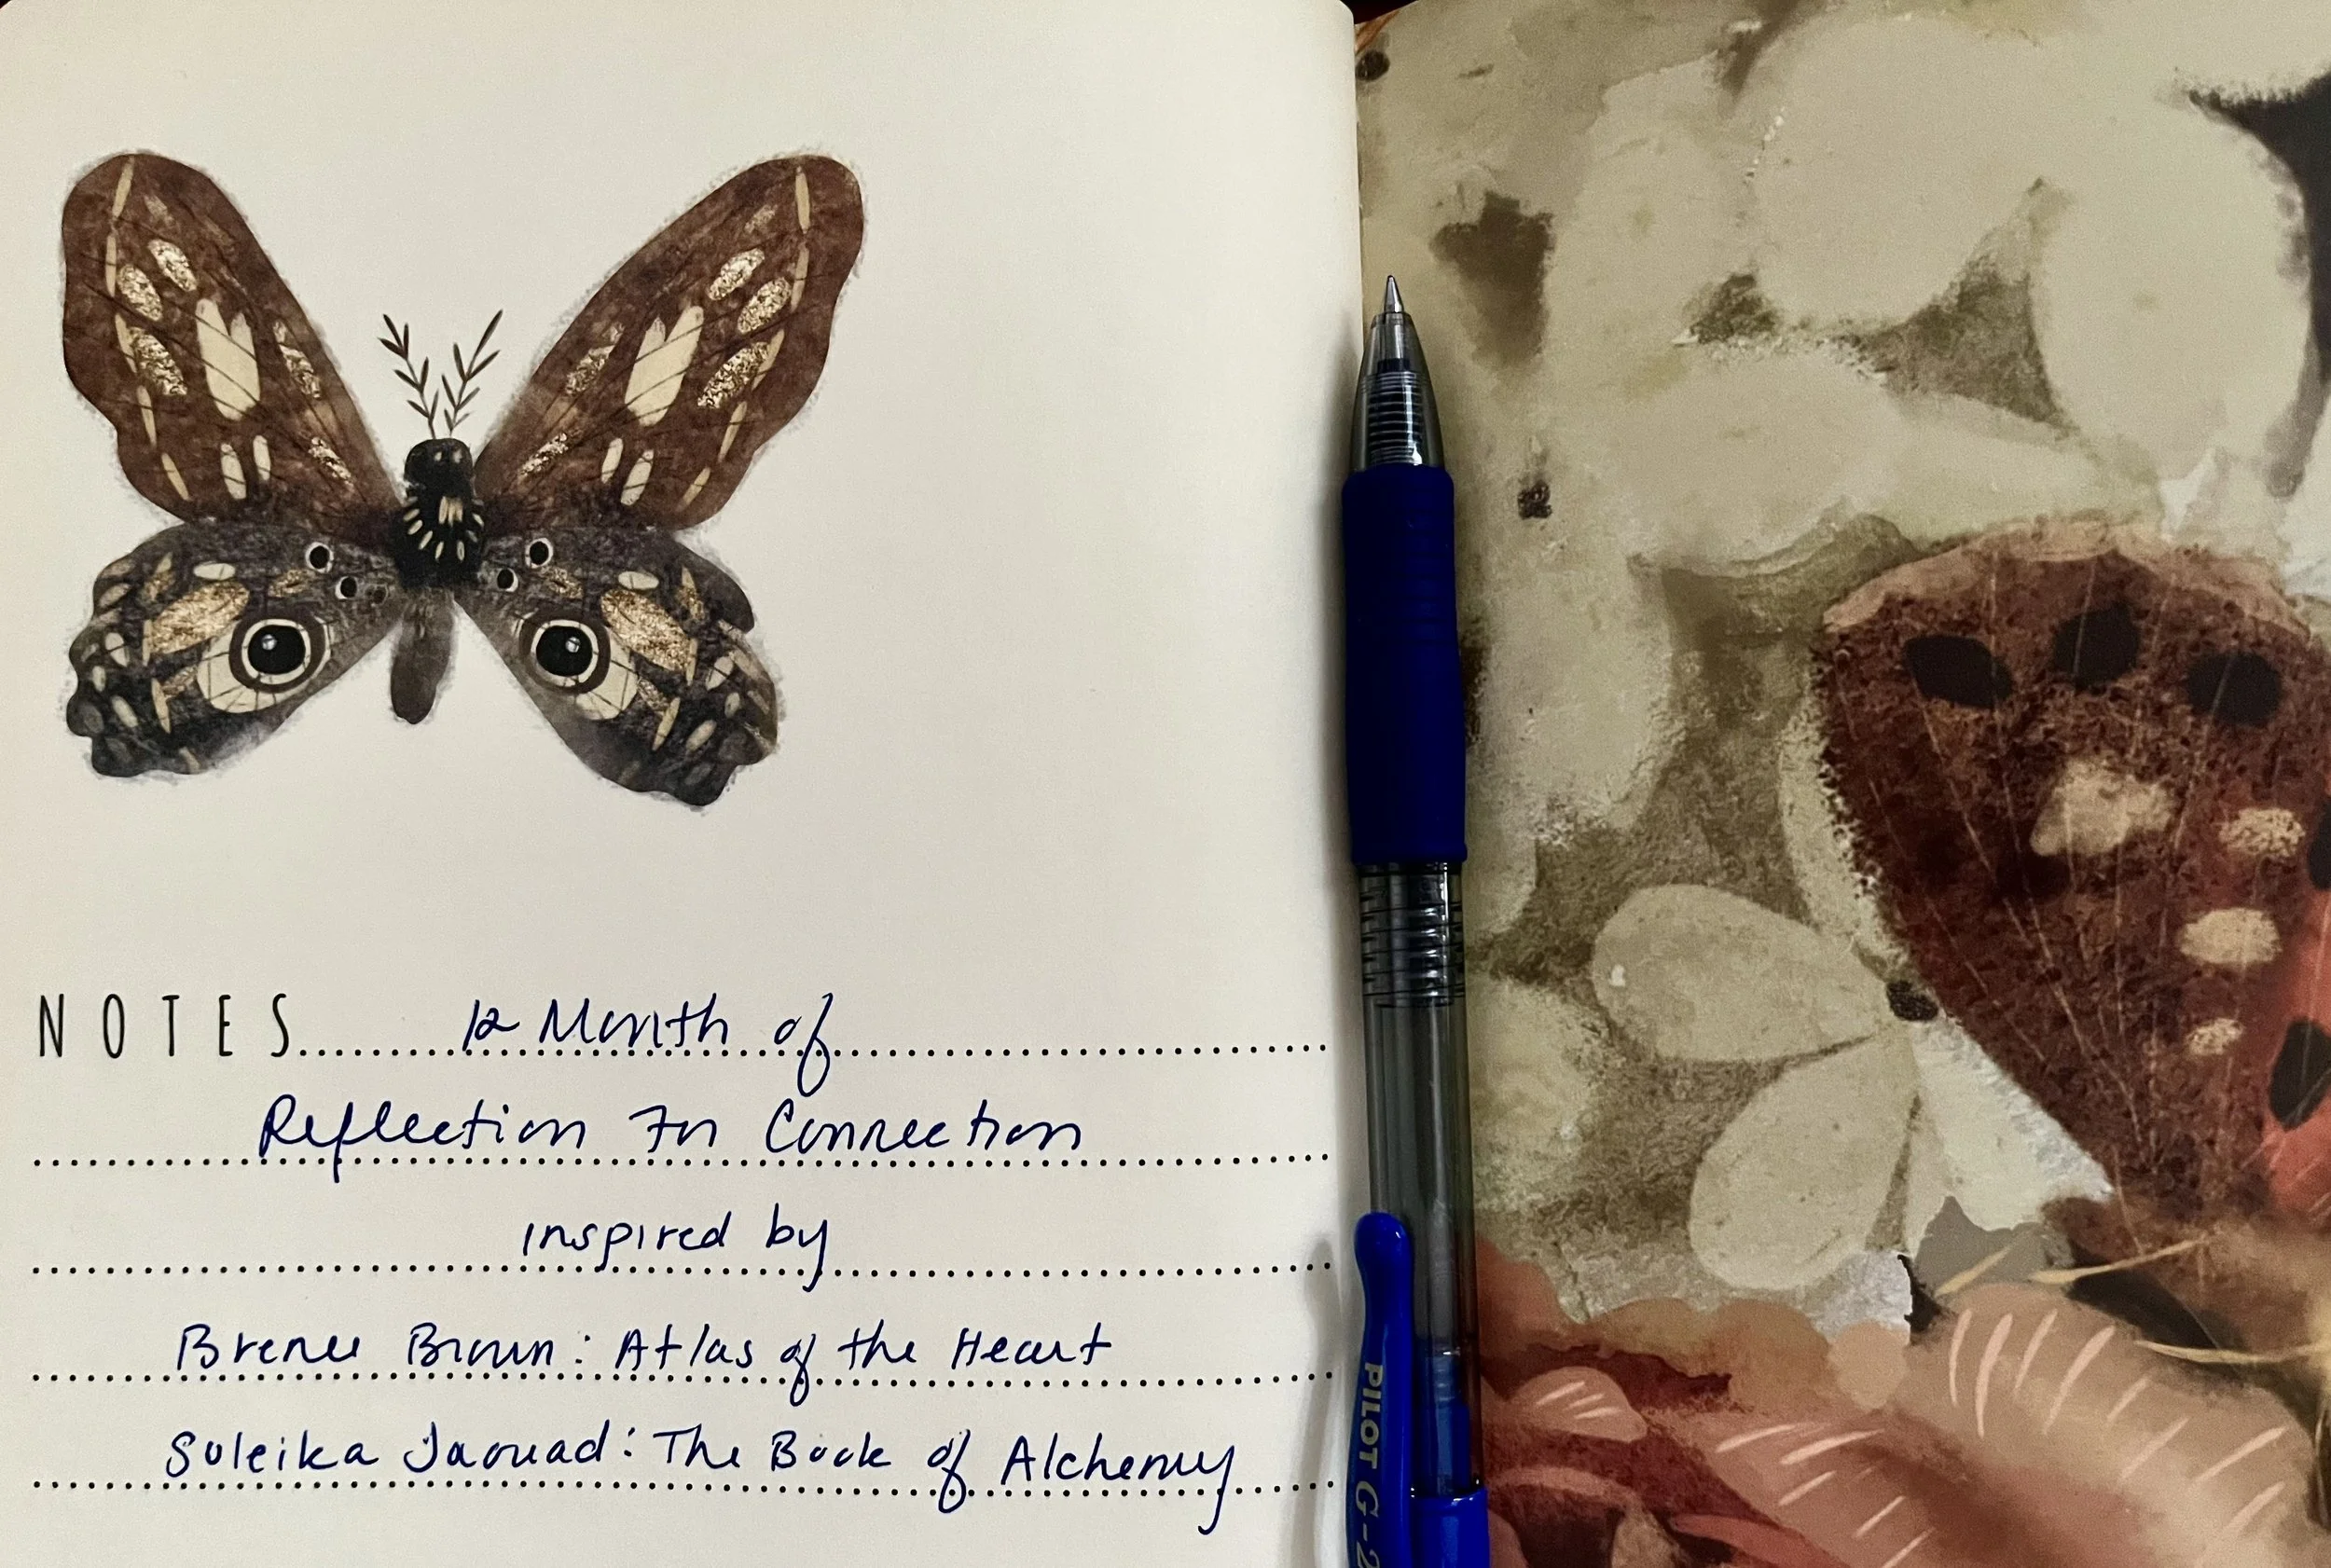 NOTES 12 Month of
Reflection For Connection
inspired by
Brene Brown: Atlas of the Heart
Suleika Jaouad: The Book of Alchemy
PILOT G-2